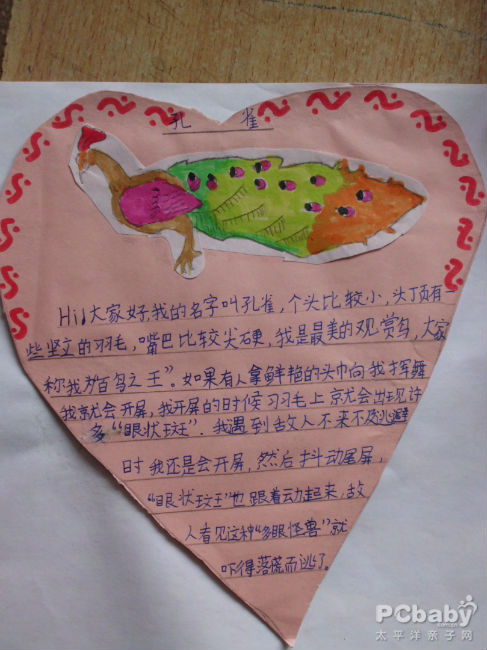 孔 雀
Hi!大家好,我的名字叫孔雀,个头比较小,头顶有一
些坚立的羽毛,嘴巴比较尖硬,我是最美的观赏鸟,大家
称我为“百鸟之王”。如果有人拿鲜艳的头巾向我挥舞
我就会开屏,我开屏的时候羽毛上就会出现许
多“眼状斑”.我遇到敌人不来不及逃避
时我还是会开屏,然后抖动尾屏,
“眼状斑”也跟着动起来,敌
人看见这种“多眼怪兽”就
吓得落慌而逃了。
PCbaby
.com.cn
太平洋亲子网